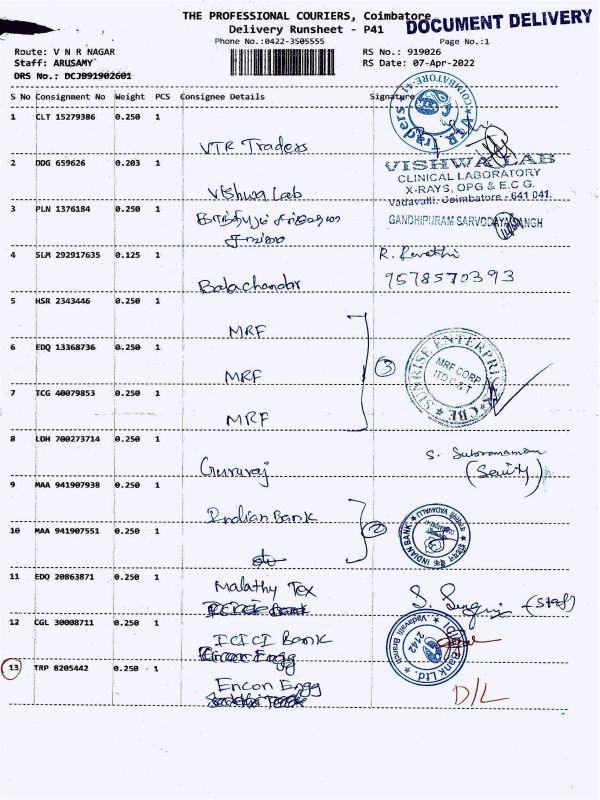 THE PROFESSIONAL COURIERS, Coimbatore
DOCUMENT DELIVERY
Delivery Runsheet - P41
Phone No.:0422-3505555
Page No.:1
Route: V N R NAGAR
RS No.: 919026
Staff: ARUSAMY
RS Date: 07-Apr-2022
DRS No.: DCJB91902601
S No Consignment No Weight PCS Consignee Details Signature
1 CLT 15279386 0.250 1
VTR Traders
2 DDG 659626 0.203 1
VISHWA LAB
CLINICAL LABORATORY
X-RAYS, OPG & E.C G.
Vishwa Lab
Vadavalli. Coimbatore - 641 041.
3 PLN 1376184 0.250 1
GANDHIPURAM SARVODAYA SANGH
4 SLM 292917635 0.125 1
R. Revathi
9578570393
Balachandar
5 HSR 2343446 0.250 1
MRF
6 EDQ 13368736 0.250 1
3
SUNRISE ENTERPRISES * CBE *
MRF CORP
MRF
7 TCG 40079853 0.250 1
MRF
8 LDH 700273714 0.250 1
S. Subramaniam
Gururaj
9 MAA 941907938 0.250 1
Indian Bank
2
INDIAN BANK
10 MAA 941907551 0.250 1
11 EDQ 20863871 0.250 1
Malathy Tex
(Staff)
12 CGL 30008711 0.250 1
ICICI Bank
ICICI Bank Ltd.
Vadavalli Branch
2142
13 TRP 8205442 0.250 1
Encon Engg
D/L